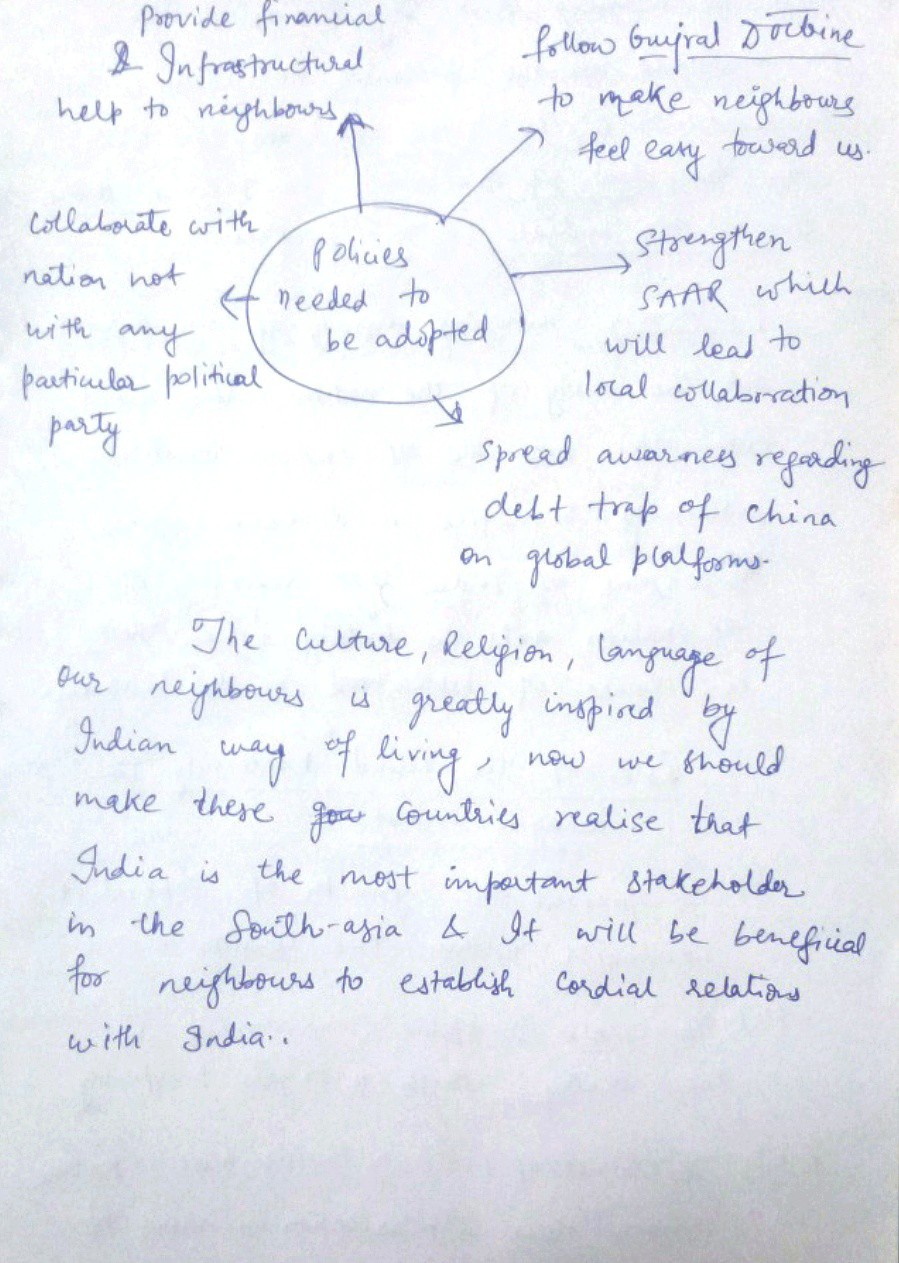 Provide financial
& Infrastructural
help to neighbours
follow Gujral Doctrine
to make neighbours
feel easy toward us.
Collaborate with
nation not
with any
particular political
party
Policies
needed to
be adopted
Strengthen
SAAR which
will lead to
local collaboration
Spread awarnees regarding
debt trap of China
on global platforms.
The Culture, Religion, language of
our neighbours is greatly inspired by
Indian way of living, now we should
make these countries realise that
India is the most important stakeholder
in the South-asia & It will be beneficial
for neighbours to establish Cordial relations
with India..